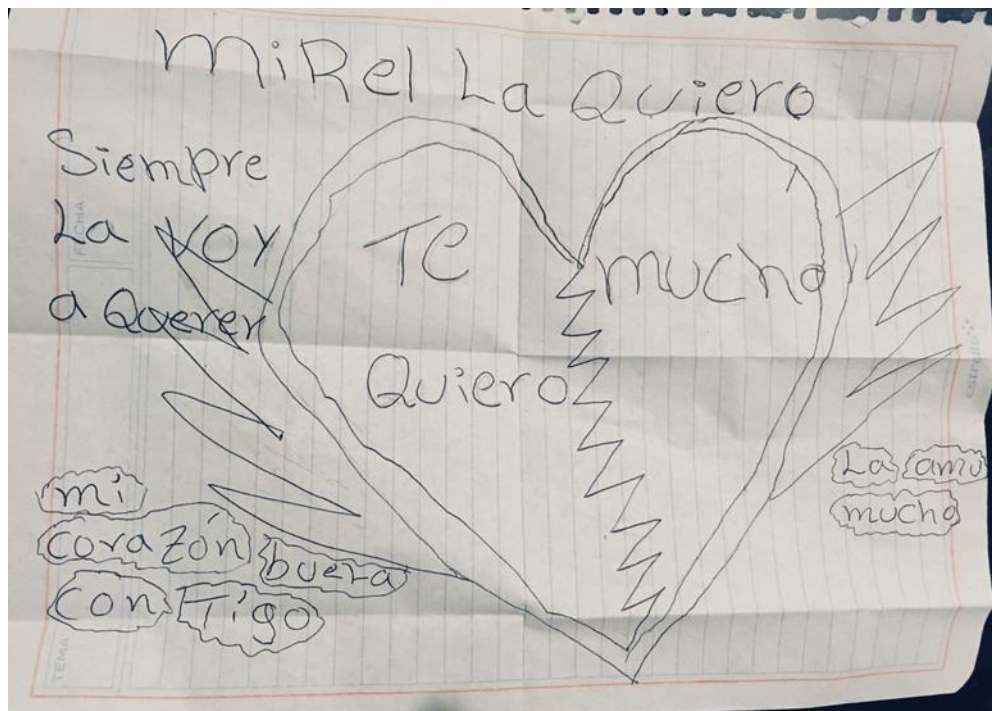 MiRel La Quiero
Siempre
La voy
a Querer
Te
Quiero
mucho
mi
corazón buera
con Tigo
La amo
mucho
FECHA
TEMA